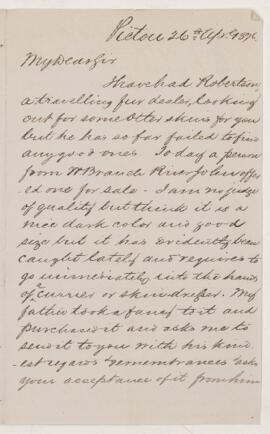 Pictou 26th Apr. 1876
My Dear Sir
I have had Robertson,
a travelling fur dealer, looking
out for some otter skins for you
but he has so far failed to find
any good ones To day a person
from Wt Branch River John offer
ed one for sale - I am no judge
of quality but think it is a
nice dark color and good
size but it has evidently been
caught lately and requires to
go immediately into the hands
of a currier or skin dresser. My
father took a fancy to it and
purchased it and asks me to
send it to you with his kind
est regards & remembrances & asks
your acceptance of it from him